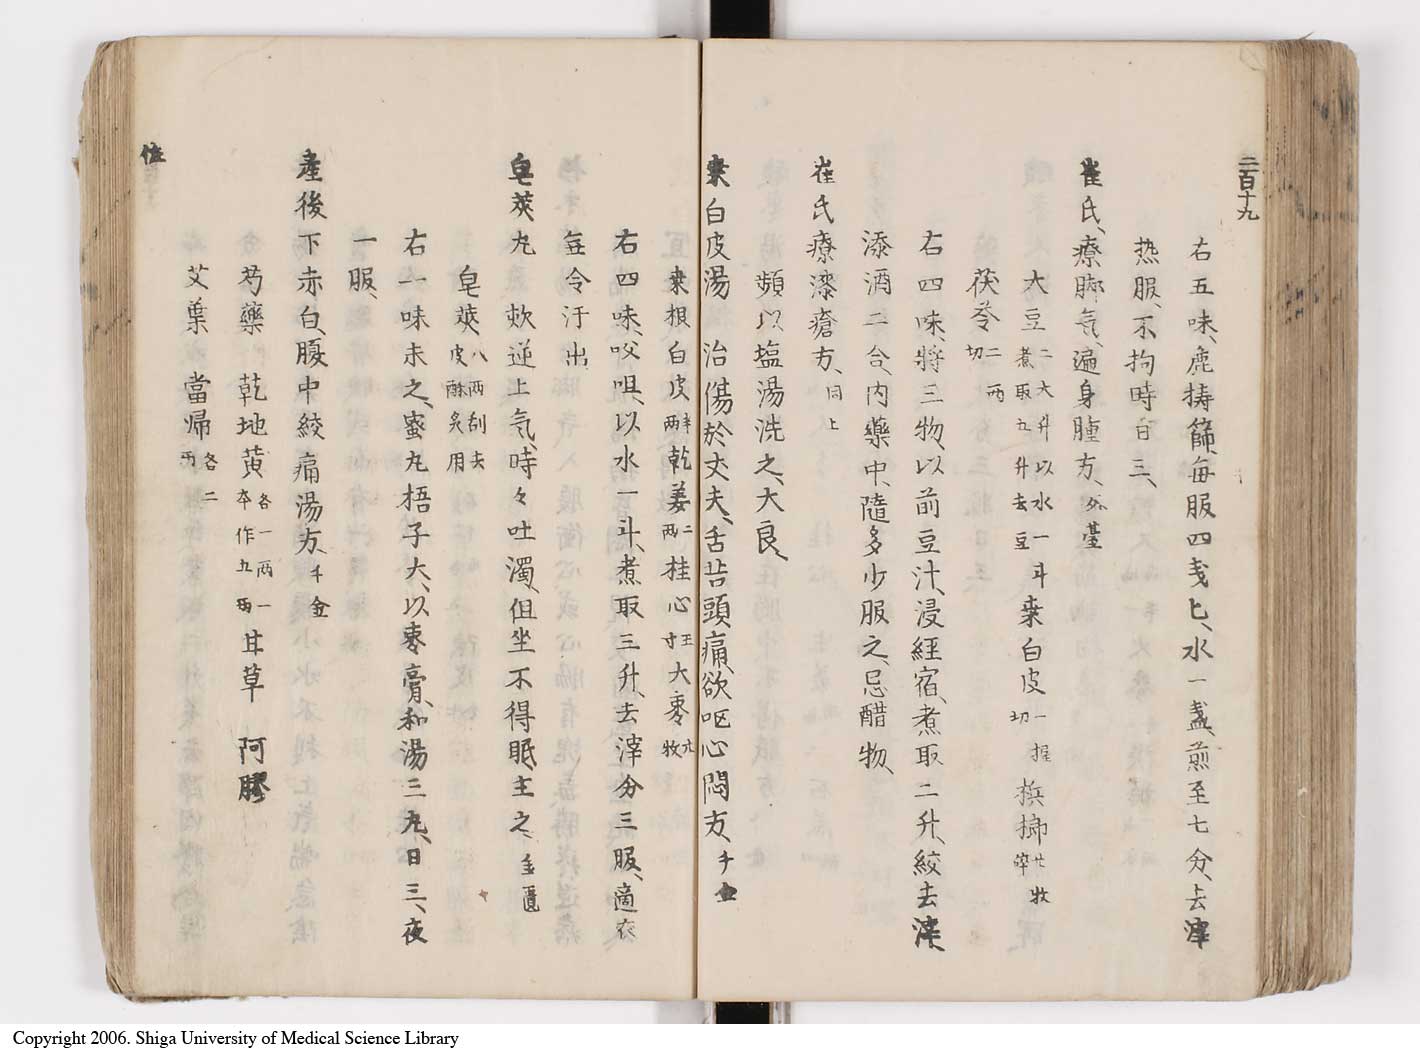 二百十九
右五味、麁擣篩每服四戔匕、水一盞、煎至七分、去滓
热服、不拘時日三、
崔氏、療脚氣、遍身腫方、外臺
大豆二大升以水一斗煮取九升去豆 桒白皮一握切 槟榔廿枚碎
茯苓二两切
右四味、將三物、以前豆汁、浸経宿、煮取二升、絞去滓、
添酒二合、内藥中、隨多少服之、忌醋物、
崔氏療漆瘡方、同上
頻以塩湯洗之、大良、
桒白皮湯 治傷於丈夫、舌苦頭痛、欲呕心悶方、千金
桒根白皮半两 乾姜二两 桂心五寸 大枣六枚
右四味、㕮咀、以水一斗、煮取三升、去滓分三服、適衣
毎令汗出
皂莢丸 欬逆上気、時々吐濁、但坐不得眠、主之、金匱
皂莢八两刮去皮酥炙用
右一味末之、蜜丸梧子大、以枣膏、和湯三丸、日三、夜
一服、
產後下赤白、腹中絞痛湯方、千金
芍藥 乾地黄各一两一本作五两 甘草 阿膠
艾葉 當帰各二两
Copyright 2006. Shiga University of Medical Science Library